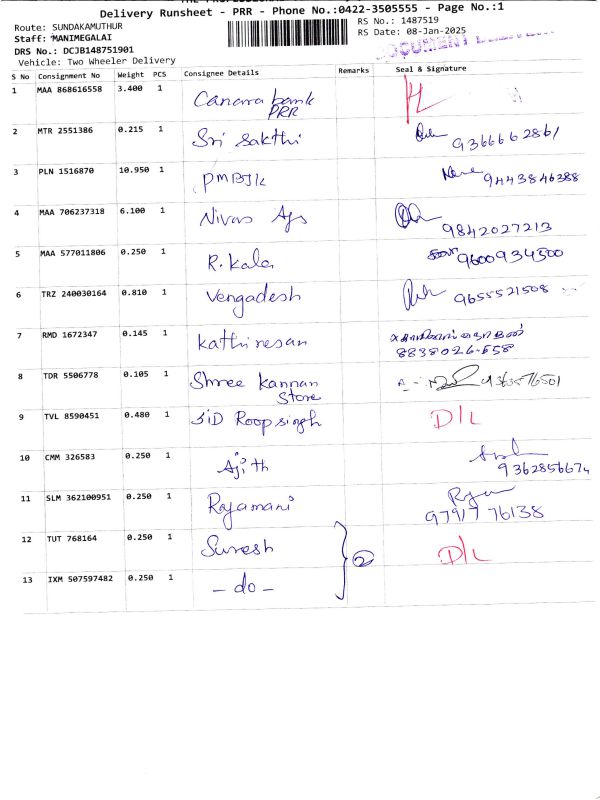 Delivery Runsheet - PRR - Phone No.:0422-3505555 - Page No.:1
Route: SUNDAKAMUTHUR
RS No.: 1487519
Staff: MANIMEGALAI
RS Date: 08-Jan-2025
DRS No.: DCJB148751901
Vehicle: Two Wheeler Delivery
S No Consignment No Weight PCS Consignee Details Remarks Seal & Signature
1 MAA 868616558 3.400 1 Canara bank
PRR
2 MTR 2551386 0.215 1 Sri Sakthi 9366662861
3 PLN 1516870 10.950 1 PMBJK 9443846388
4 MAA 706237318 6.100 1 Nivas Ags 9842027213
5 MAA 577011806 0.250 1 R. Kala 9600934500
6 TRZ 240030164 0.810 1 Vengadesh 9655521508
7 RMD 1672347 0.145 1 Kathiresan
8838026658
8 TDR 5506778 0.105 1 Shree Kannan
Store
9 TVL 8590451 0.480 1 JID Roop singh D/L
10 CMM 326583 0.250 1 Ajith
9362856674
11 SLM 362100951 0.250 1 Rajamani
97917 76138
12 TUT 768164 0.250 1 Suresh 2 D/L
13 IXM 507597482 0.250 1 - do -